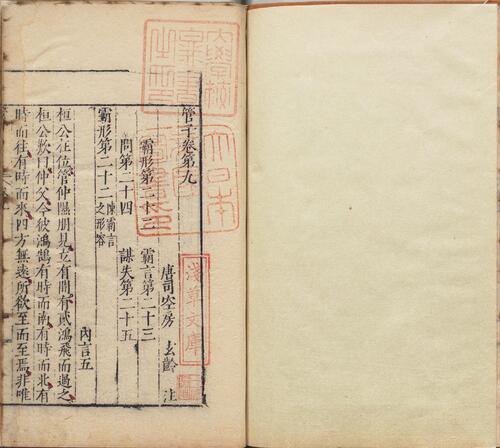 管子卷第九
唐司空房 玄齡 注
霸形第二十二 霸言第二十三
問第二十四 謀失第二十五
霸形第二十二 陳霸言之形容 內言五
桓公在位管仲隰朋見立有間有貳鴻飛而過之
桓公歎曰仲父今彼鴻鵠有時而南有時而北有
時而往有時而來四方無遠所欲至而至焉非唯
淺草文庫
大日本